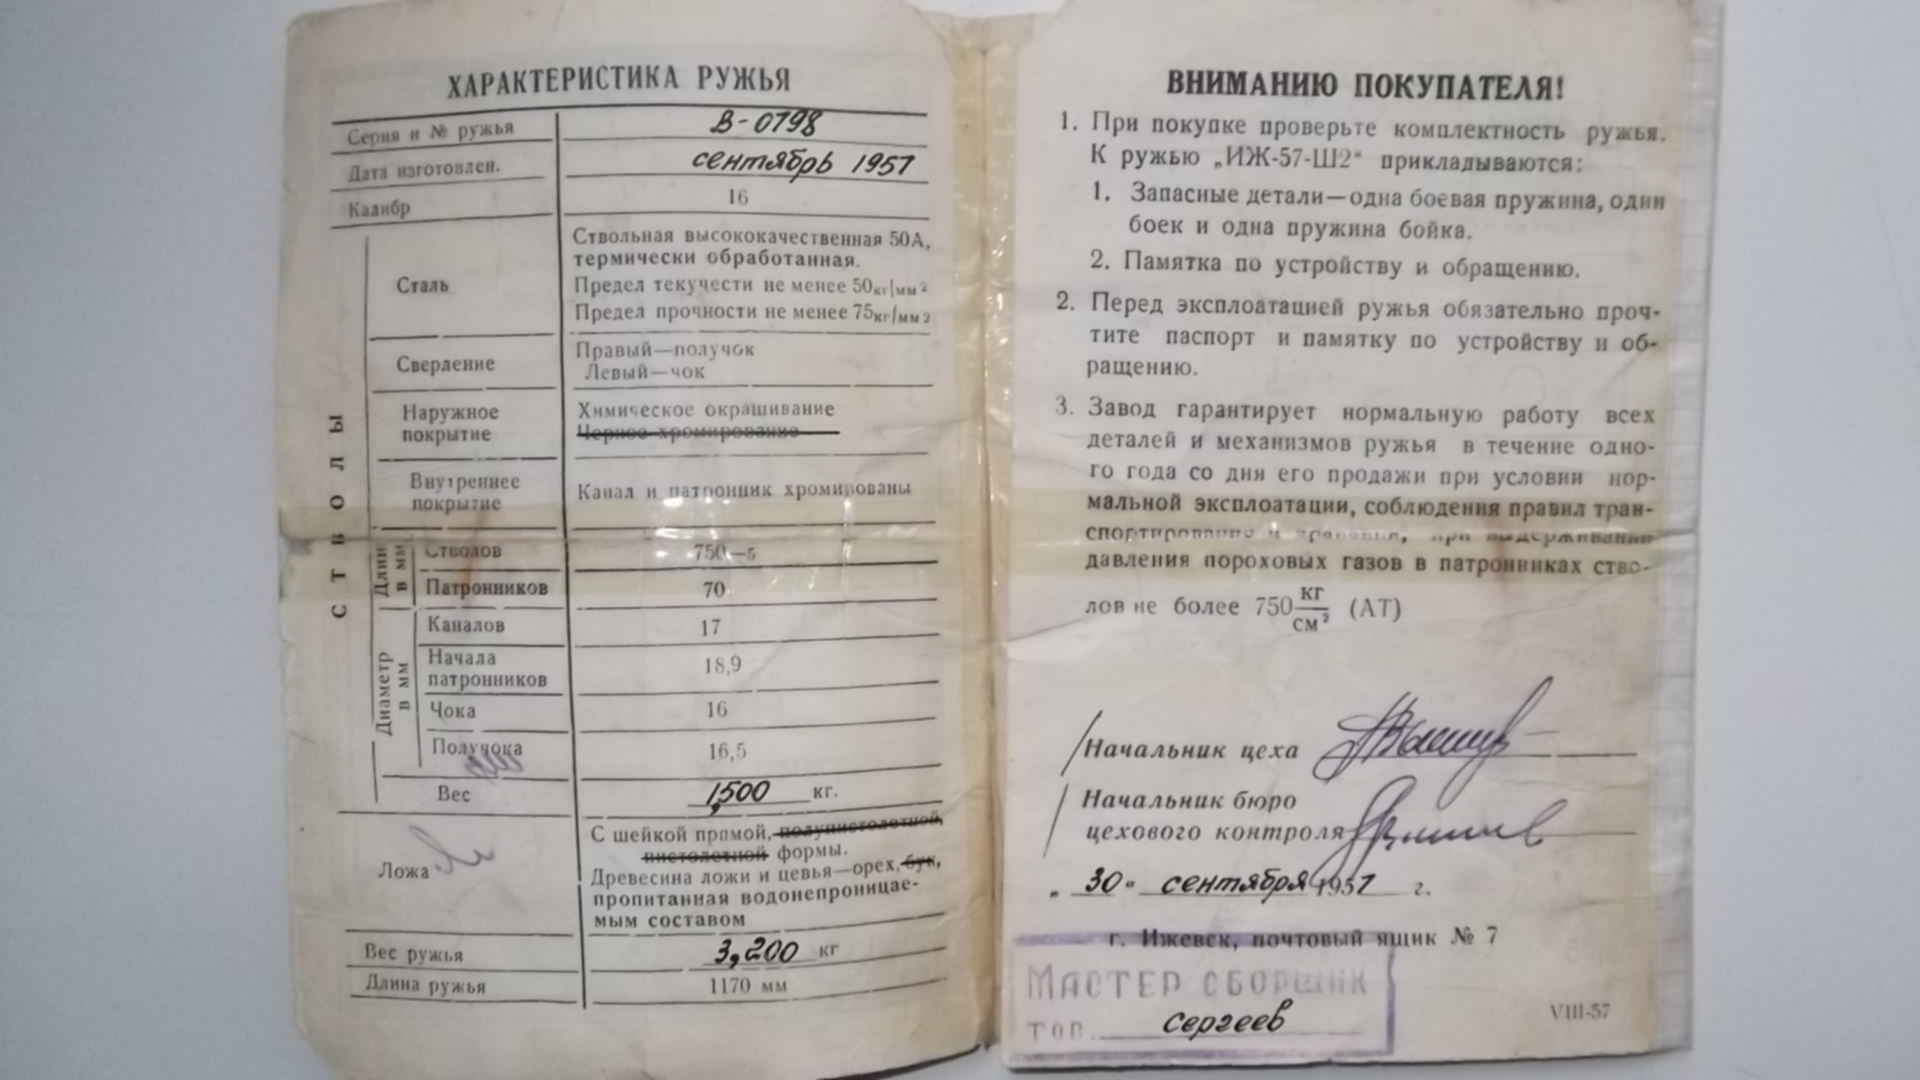 ХАРАКТЕРИСТИКА РУЖЬЯ
Серия и № ружья В-0798
Дата изготовлен. сентябрь 1957
Калибр 16
СТВОЛЫ
Сталь
Ствольная высококачественная 50А,
термически обработанная.
Предел текучести не менее 50кг/мм²
Предел прочности не менее 75кг/мм2
Сверление
Правый—получок
Левый—чок
Наружное
покрытие
Химическое окрашивание
Черное хромирование
Внутреннее
покрытие
Канал и патронник хромированы
Длин
в мм
Стволов 750—5
Патронников 70
Диаметр
в мм
Каналов 17
Начала
патронников
18,9
Чока 16
Получока 16,5
Вес 1,500 кг.
Ложа
С шейкой прямой, полупистолетной,
пистолетной формы.
Древесина ложи и цевья—орех, бук,
пропитанная водонепроницае-
мым составом
Вес ружья 3,200 кг
Длина ружья 1170 мм
ВНИМАНИЮ ПОКУПАТЕЛЯ!
1. При покупке проверьте комплектность ружья.
К ружью „ИЖ-57-Ш2“ прикладываются:
1. Запасные детали—одна боевая пружина, один
боек и одна пружина бойка.
2. Памятка по устройству и обращению.
2. Перед эксплоатацией ружья обязательно проч-
тите паспорт и памятку по устройству и об-
ращению.
3. Завод гарантирует нормальную работу всех
деталей и механизмов ружья в течение одно-
го года со дня его продажи при условии нор-
мальной эксплоатации, соблюдения правил тран-
спортирования и хранения, при выдерживании
давления пороховых газов в патронниках ство-
лов не более 750 кг/см² (АТ)
Начальник цеха
Начальник бюро
цехового контроля
„ 30 “ сентября 1957 г.
г. Ижевск, почтовый ящик № 7
МАСТЕР СБОРЩИК
тов. Сергеев
VIII-57